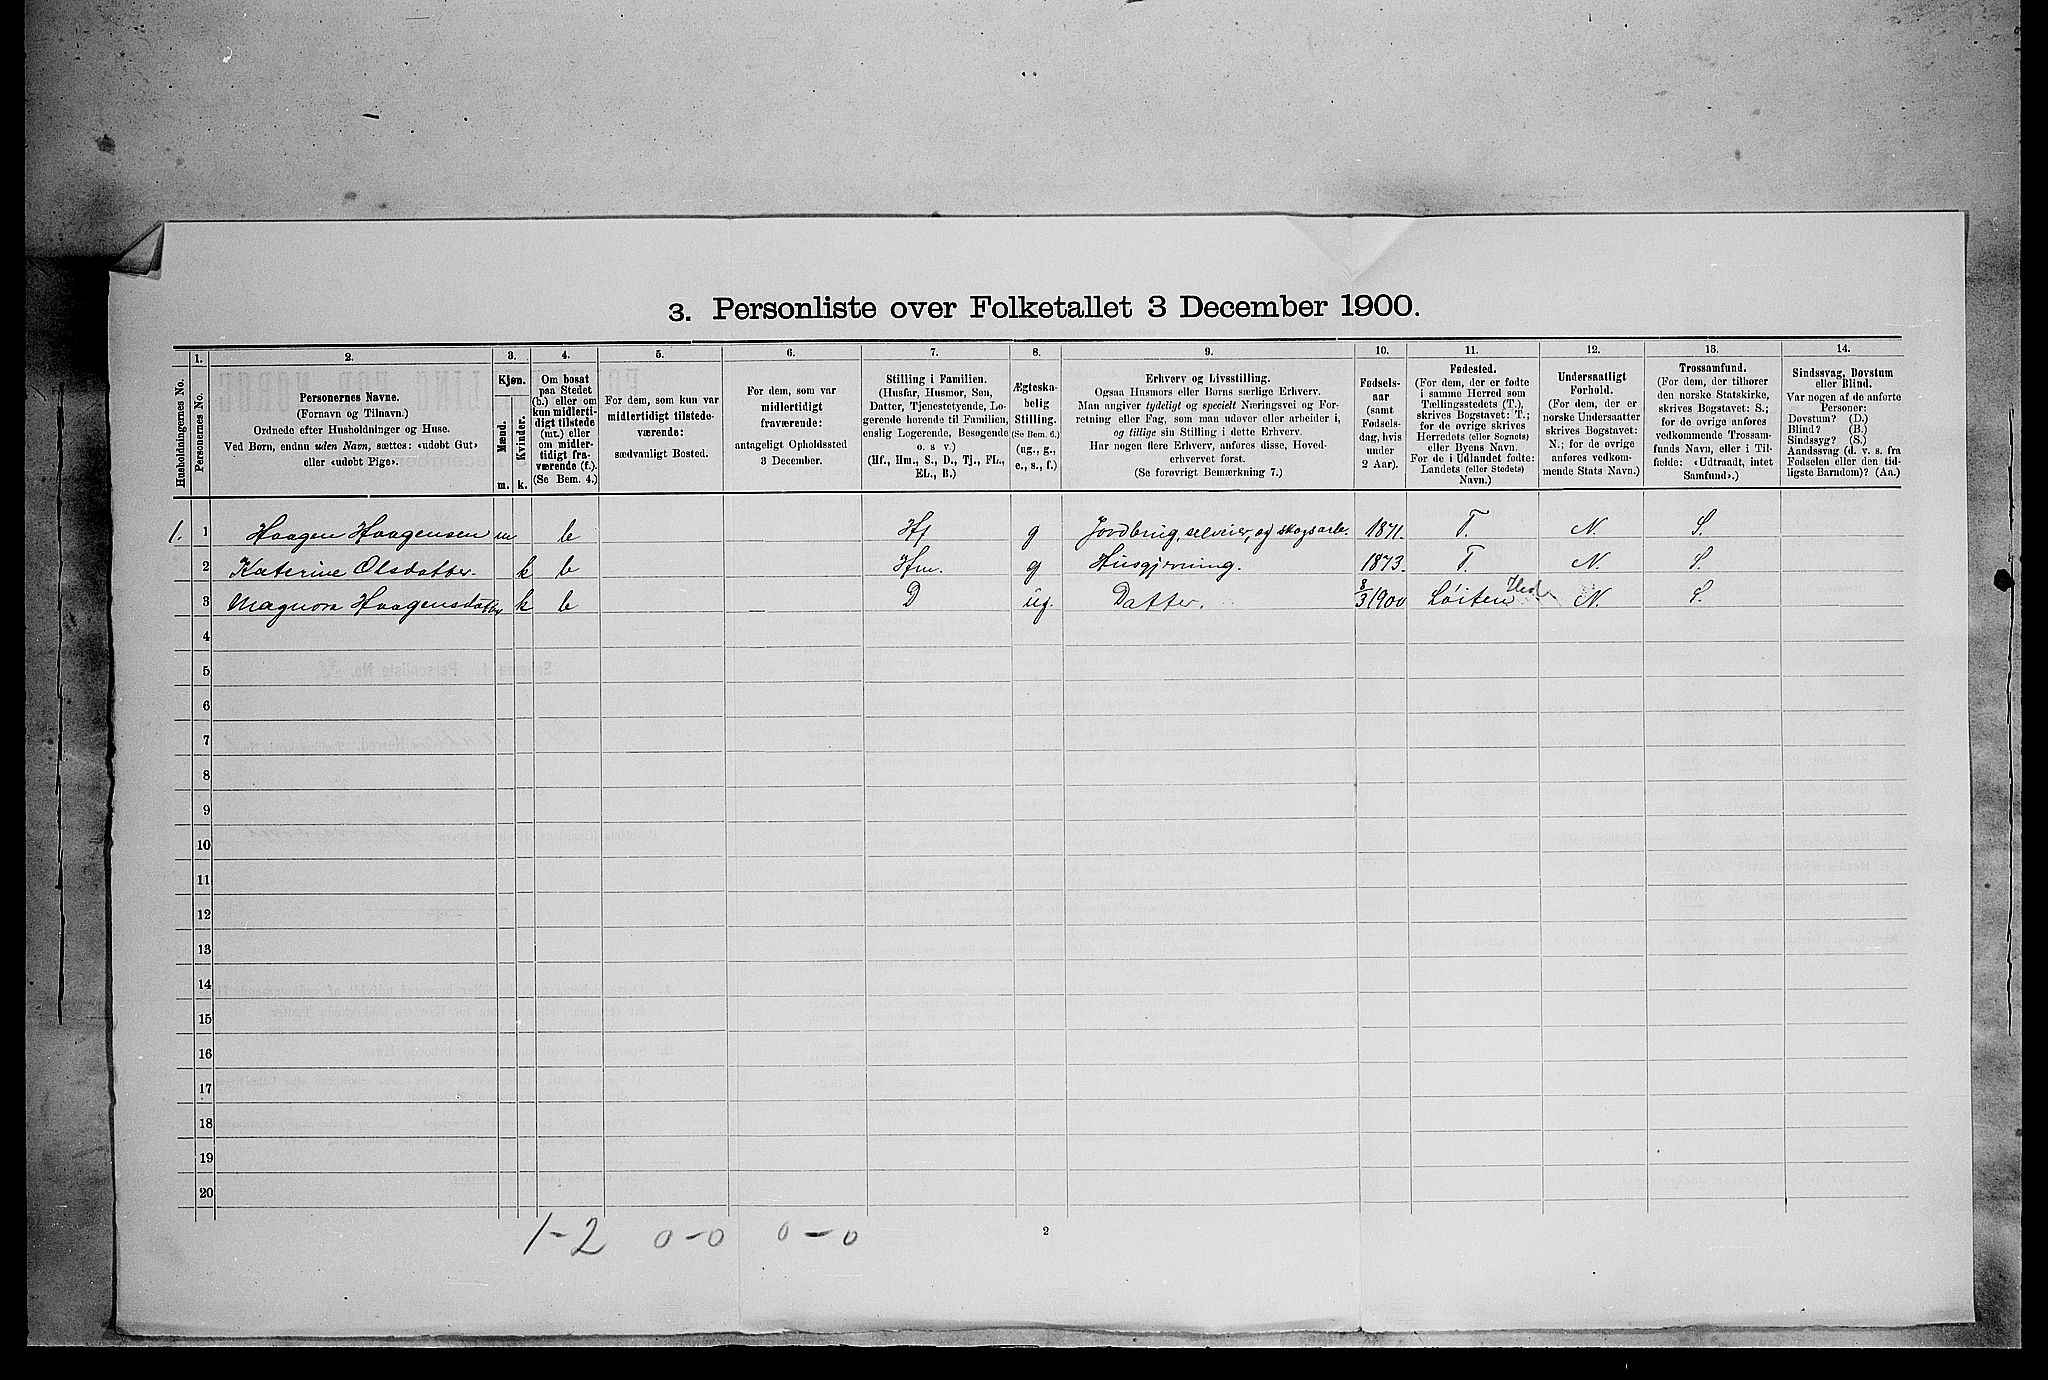 3. Personliste over Folketallet 3 December 1900.
Husholdningernes No.
1.
Personernes No.
2.
Personernes Navne.
(Fornavn og Tilnavn.)
Ordnede efter Husholdninger og Huse.
Ved Børn, endnu uden Navn, sættes: «udøbt Gut»
eller «udøbt Pige».
3.
Kjøn.
Mænd.
Kvinder.
m. k.
4.
Om bosat
paa Stedet
(b.) eller om
kun midlerti-
digt tilstede
(mt.) eller
om midler-
tidigt fra-
værende (f.).
(Se Bem. 4.)
5.
For dem, som kun var
midlertidigt tilstede-
værende:
sædvanligt Bosted.
6.
For dem, som var
midlertidigt
fraværende:
antageligt Opholdssted
3 December.
7.
Stilling i Familien.
(Husfar, Husmor, Søn,
Datter, Tjenestetyende, Lo-
gerende hørende til Familien,
enslig Logerende, Besøgende
o. s v.)
(Hf., Hm., S., D., Tj., FL.,
EL., B.)
8.
Ægteska-
belig
Stilling.
(Se Bem. 6.)
(ug., g.,
e., s., f.)
9.
Erhverv og Livsstilling.
Ogsaa Husmors eller Børns særlige Erhverv.
Man angiver tydeligt og specielt Næringsvei og For-
retning eller Fag, som man udøver eller arbeider i,
og tillige sin Stilling i dette Erhverv.
Har nogen flere Erhverv, anføres disse, Hoved-
erhvervet først.
(Se forøvrigt Bemærkning 7.)
10.
Fødsels-
aar
(samt
Fødsels-
dag, hvis
under
2 Aar).
11.
Fødested.
(For dem, der er fødte
i samme Herred som
Tællingsstedets (T.),
skrives Bogstavet: T.;
for de øvrige skrives
Herredets (eller Sognets)
eller Byens Navn.
For de i Udlandet fødte:
Landets (eller Stedets)
Navn.)
12.
Undersaatligt
Forhold.
(For dem, der er
norske Undersaatter
skrives Bogstavet:
N.; for de øvrige
anføres vedkom-
mende Stats Navn.)
13.
Trossamfund.
(For dem, der tilhører
den norske Statskirke,
skrives Bogstavet: S.;
for de øvrige anføres
vedkommende Trossam-
funds Navn, eller i Til-
fælde: «Udtraadt, intet
Samfund».)
14.
Sindssvag, Døvstum
eller Blind.
Var nogen af de anførte
Personer:
Døvstum? (D.)
Blind? (B.)
Sindssyg? (S.)
Aandssvag (d. v. s. fra
Fødselen eller den tid-
ligste Barndom)? (Aa.)
1. 1 Haagen Haagensen m b Hf g Jordbrug, selveier, og skogsarb. 1871. T. N. S.
2 Katerine Olsdatter. k b Hm. g Husgjerning. 1873. T. N. S.
3 Magnora Haagensdatter k b D ug. Datter. 8/3 1900 Løiten Hed N. S.
4
5
6
7
8
9
10
11
12
13
14
15
16
17
18
19
20
1-2 0-0 0-0
2